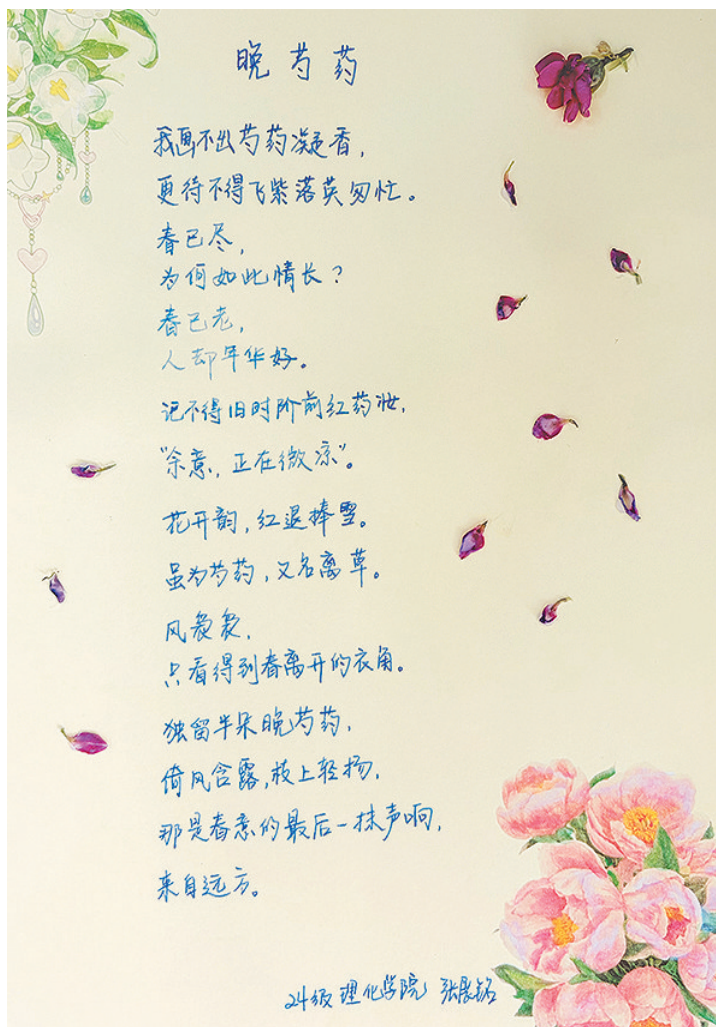 晚芍药
我画不出芍药凝香，
更待不得飞紫落英匆忙。
春已尽，
为何如此情长？
春已老，
人却年华好。
记不得旧时阶前红药妆，
“余意，正在微凉”。
花开韵，红退捧雪。
虽为芍药，又名离草。
风袅袅，
只看得到春离开的衣角。
独留半朵晚芍药，
倚风含露，枝上轻扬，
那是春意的最后一抹声响，
来自远方。
24级 理化学院 张展铭